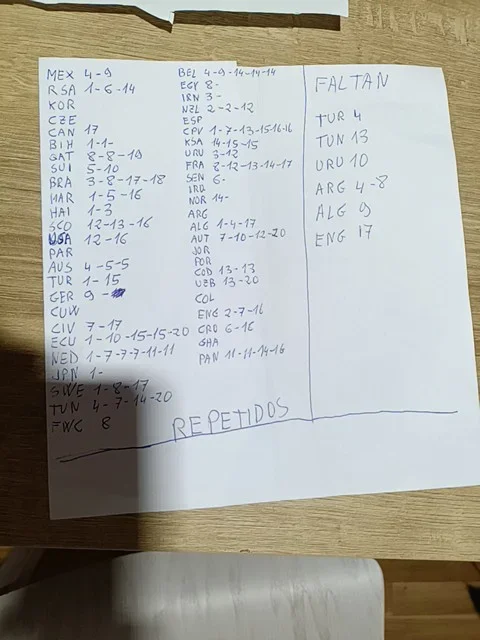 MEX 4-9
RSA 1-6-14
KOR
CZE
CAN 17
BIH 1-1-
QAT 8-8-19
SUI 5-10
BRA 3-8-17-18
MAR 1-5-16
HAI 1-3
SCO 12-13-16
USA 12-16
PAR
AUS 4-5-5
TUR 1-15
GER 9-
CUW
CIV 7-17
ECU 1-10-15-15-20
NED 1-7-7-7-11-11
JPN 1-
SWE 1-8-17
TUN 4-7-14-20
FWC 8
BEL 4-9-14-14-14
EGY 8-
IRN 3-
NZL 2-2-12
ESP
CPV 1-7-13-15-16-16
KSA 14-15-15
URU 3-12
FRA 8-12-13-14-17
SEN 6-
IRQ
NOR 14-
ARG
ALG 1-4-17
AUT 7-10-12-20
JOR
POR
COD 13-13
UZB 13-20
COL
ENG 2-7-16
CRO 6-16
GHA
PAN 11-11-14-16
REPETIDOS
FALTAN
TUR 4
TUN 13
URU 10
ARG 4-8
ALG 9
ENG 17